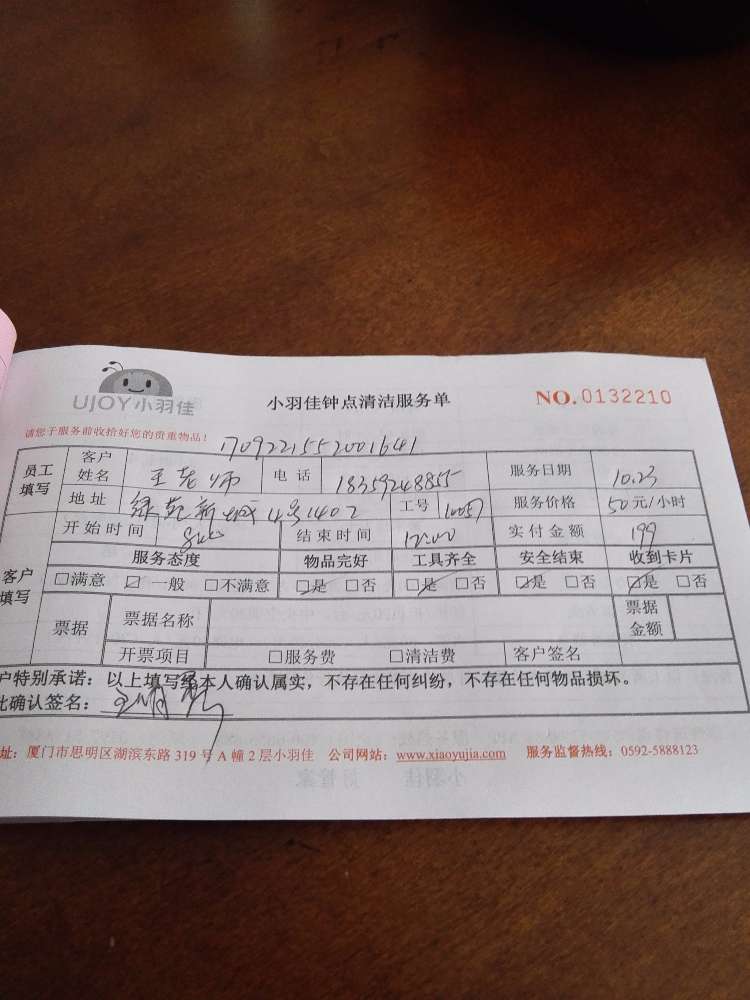 UJOY小羽佳
小羽佳钟点清洁服务单
NO.0132210
请您于服务前收拾好您的贵重物品!
1709221552001641
员工填写 客户姓名 王老师 电话 18359248855 服务日期 10.23
地址 绿苑新城 4号1402 工号 服务价格 50元/小时
客户填写 开始时间 结束时间 12:00 实付金额 199
服务态度 物品完好 工具齐全 安全结束 收到卡片
□满意 ☑一般 □不满意 ☑是 □否 ☑是 □否 ☑是 □否 ☑是 □否
票据 票据名称 票据金额
开票项目 □服务费 □清洁费 客户签名
户特别承诺:以上填写经本人确认属实,不存在任何纠纷,不存在任何物品损坏。
此确认签名:
址:厦门市思明区湖滨东路 319 号 A 幢 2 层小羽佳 公司网站:www.xiaoyujia.com 服务监督热线:0592-5888123